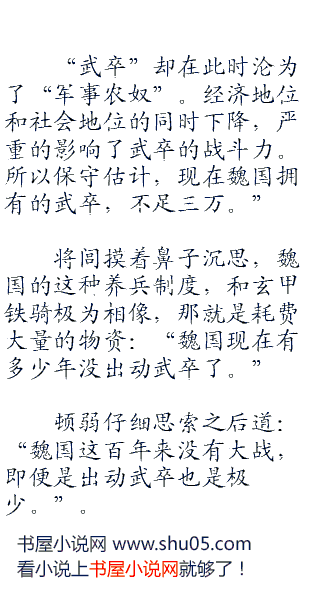 “武卒”却在此时沦为
了“军事农奴”。经济地位
和社会地位的同时下降，严
重的影响了武卒的战斗力。
所以保守估计，现在魏国拥
有的武卒，不足三万。”
将闾摸着鼻子沉思，魏
国的这种养兵制度，和玄甲
铁骑极为相像，那就是耗费
大量的物资：“魏国现在有
多少年没出动武卒了。”
顿弱仔细思索之后道：
“魏国这百年来没有大战，
即便是出动武卒也是极
少。”。
书屋小说网 www.shu05.com
看小说上书屋小说网就够了！